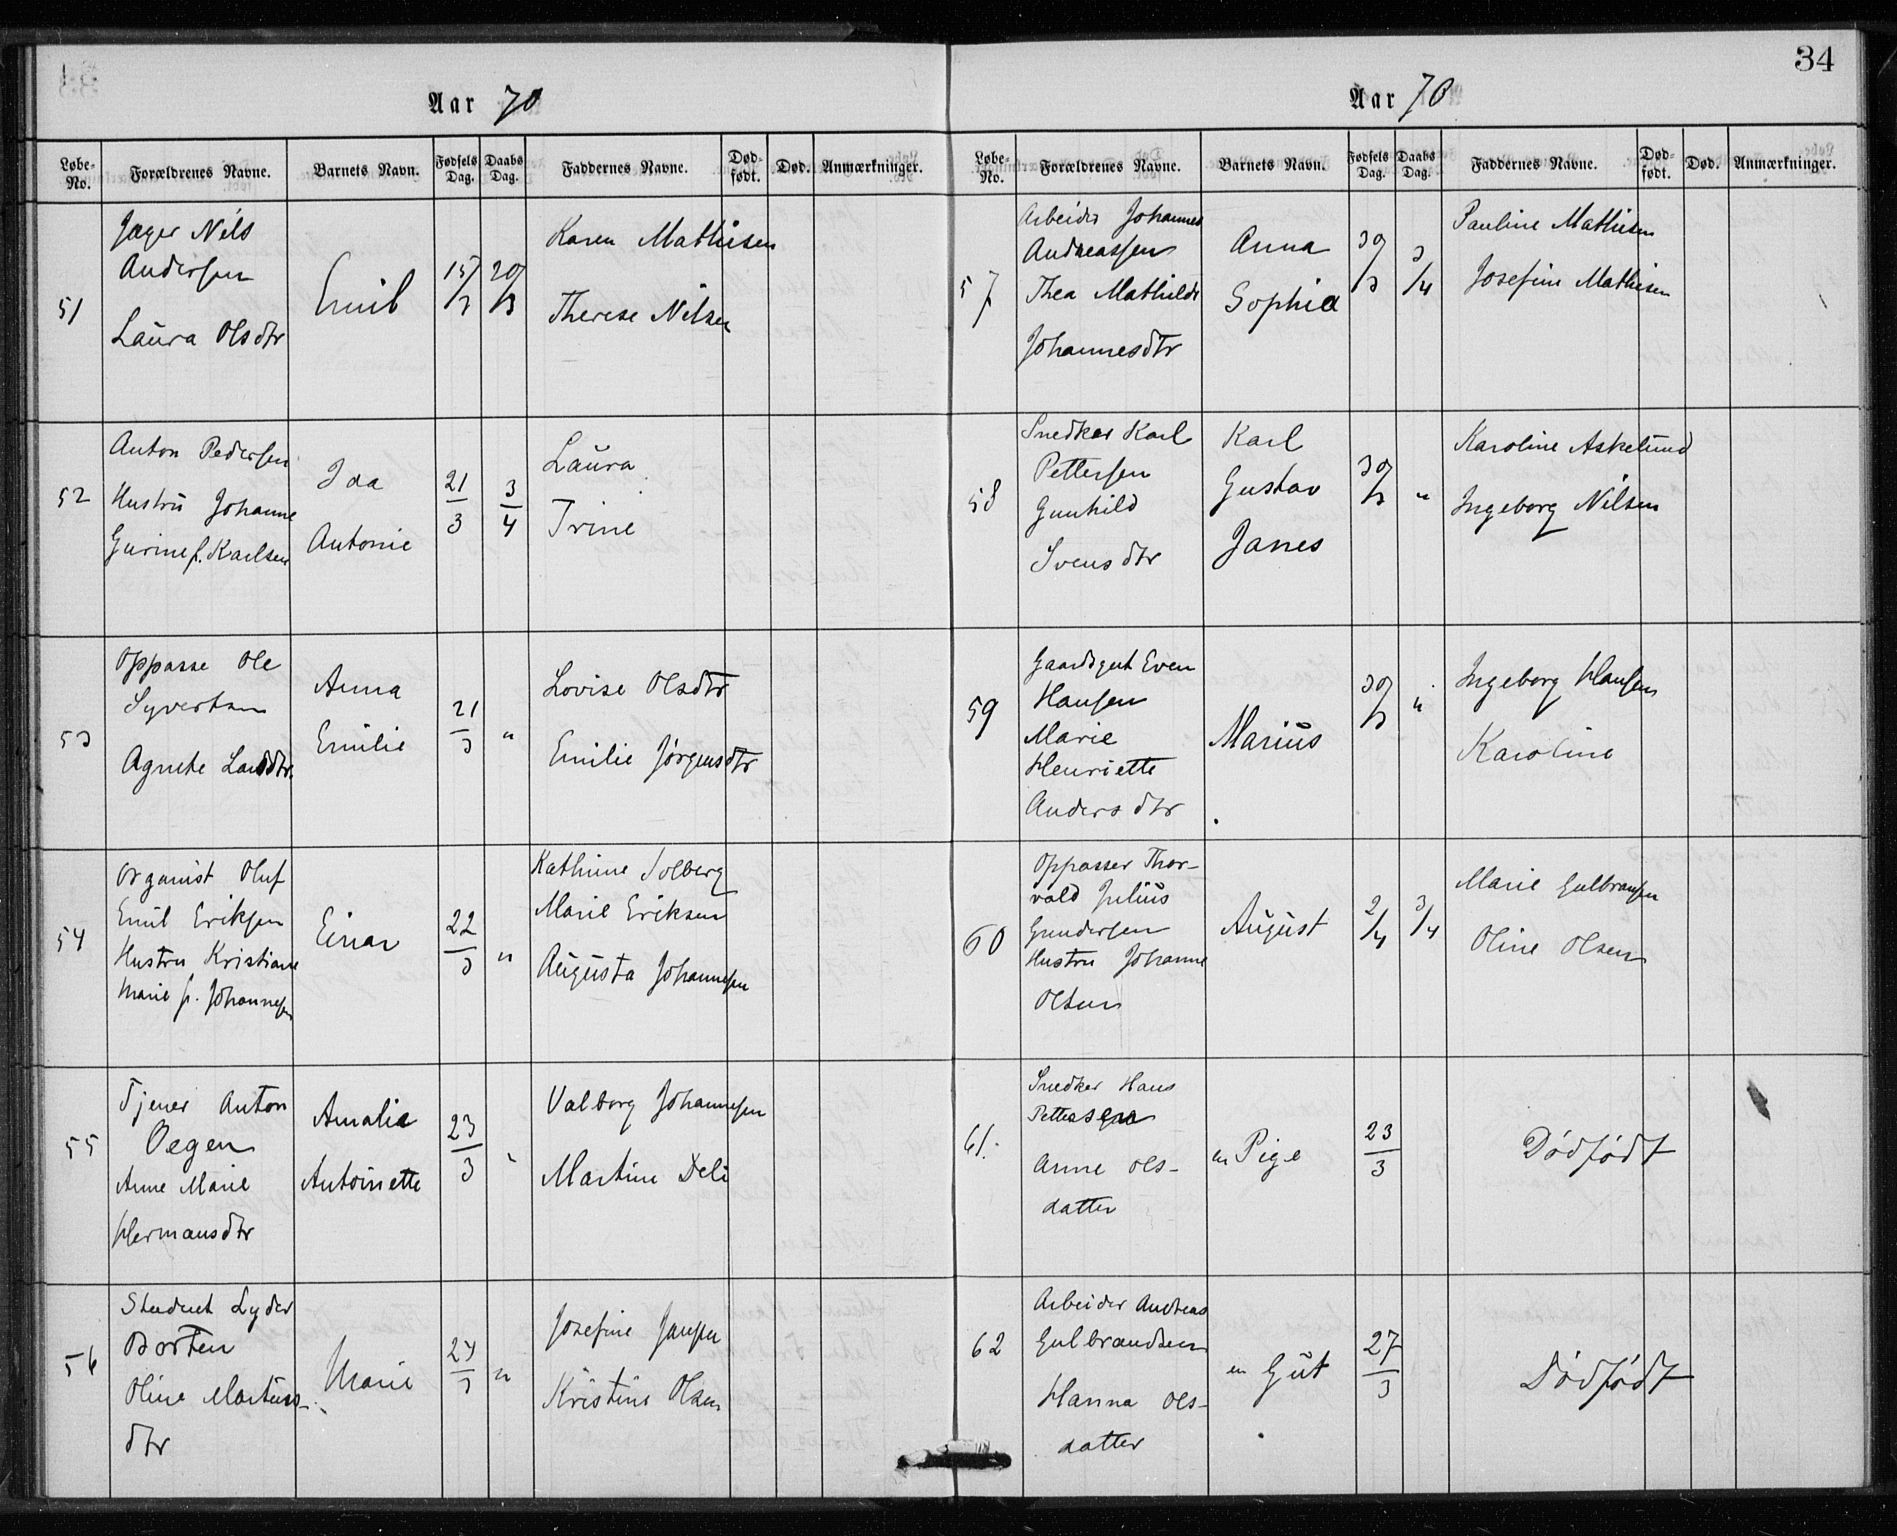 34
Aar 70
Løbe-No. Forældrenes Navne. Barnets Navn. Fødsels Dag. Daabs Dag. Faddernes Navne. Død-født. Død. Anmærkninger.
51
Jæger Nils
Andersen
Laura Olsdtr
Emil
15/3
20/3
Karen Mathisen
Therese Nilsen
52
Anton Pedersen
Hustru Johanne
Gurine f. Karlsen
Ida
Antonie
21/3
3/4
Laura
Trine
53
Oppasse Ole
Syvertsen
Agnethe
Anna
Emilie
21/3
"
Lovise Olsdtr
Emilie Jørgensdtr
54
Organist Oluf
Emil Eriksen
Hustru Kristiane
Marie f. Johannesen
Einar
22/3
"
Kathrine Solberg
Marie Eriksen
Augusta Johannesen
55
Tjener Anton
Oegen
Anne Marie
Hermansdtr
Amalie
Antoinette
23/3
"
Valborg Johannesen
Martine Deli
56
Student Lyder
Borten
Oline Martins-
dtr
Marie
24/3
"
Josefine Jansen
Kristine Olsen
Aar 70
Løbe-No. Forældrenes Navne. Barnets Navn. Fødsels Dag. Daabs Dag. Faddernes Navne. Død-født. Død. Anmærkninger.
57
Arbeider Johannes
Andreassen
Thea Mathilde
Johannesdtr
Anna
Sophia
30/3
3/4
Pauline Mathisen
Josefine Mathisen
58
Snedker Karl
Pettersen
Gunhild
Svensdtr
Karl
Gustav
Janes
30/3
"
Karoline Askelund
Ingeborg Nilsen
59
Gaardsgut Even
Hansen
Marie
Henriette
Andersdtr
Marius
30/3
"
Ingeborg Hansen
Karoline
60
Oppasser Thor-
vald Julius
Gundersen
Hustru Johanne
Olsen
August
2/4
3/4
Marie Gulbransen
Oline Olsen
61.
Snedker Hans
Pettersen
Anne Ols-
datter
en Pige
23/3
Dødfødt
62
Arbeider Andreas
Gulbrandsen
Hanna Ols-
datter
en Gut
27/3
Dødfødt